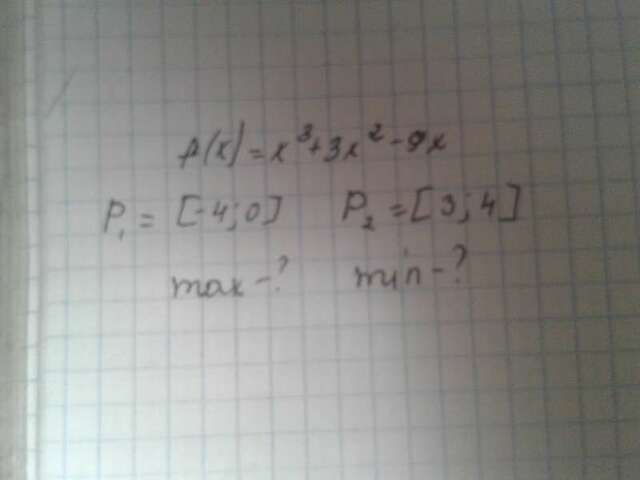 f(x) = x³ + 3x² - 9x
P₁ = [-4; 0] P₂ = [3; 4]
max - ? min - ?